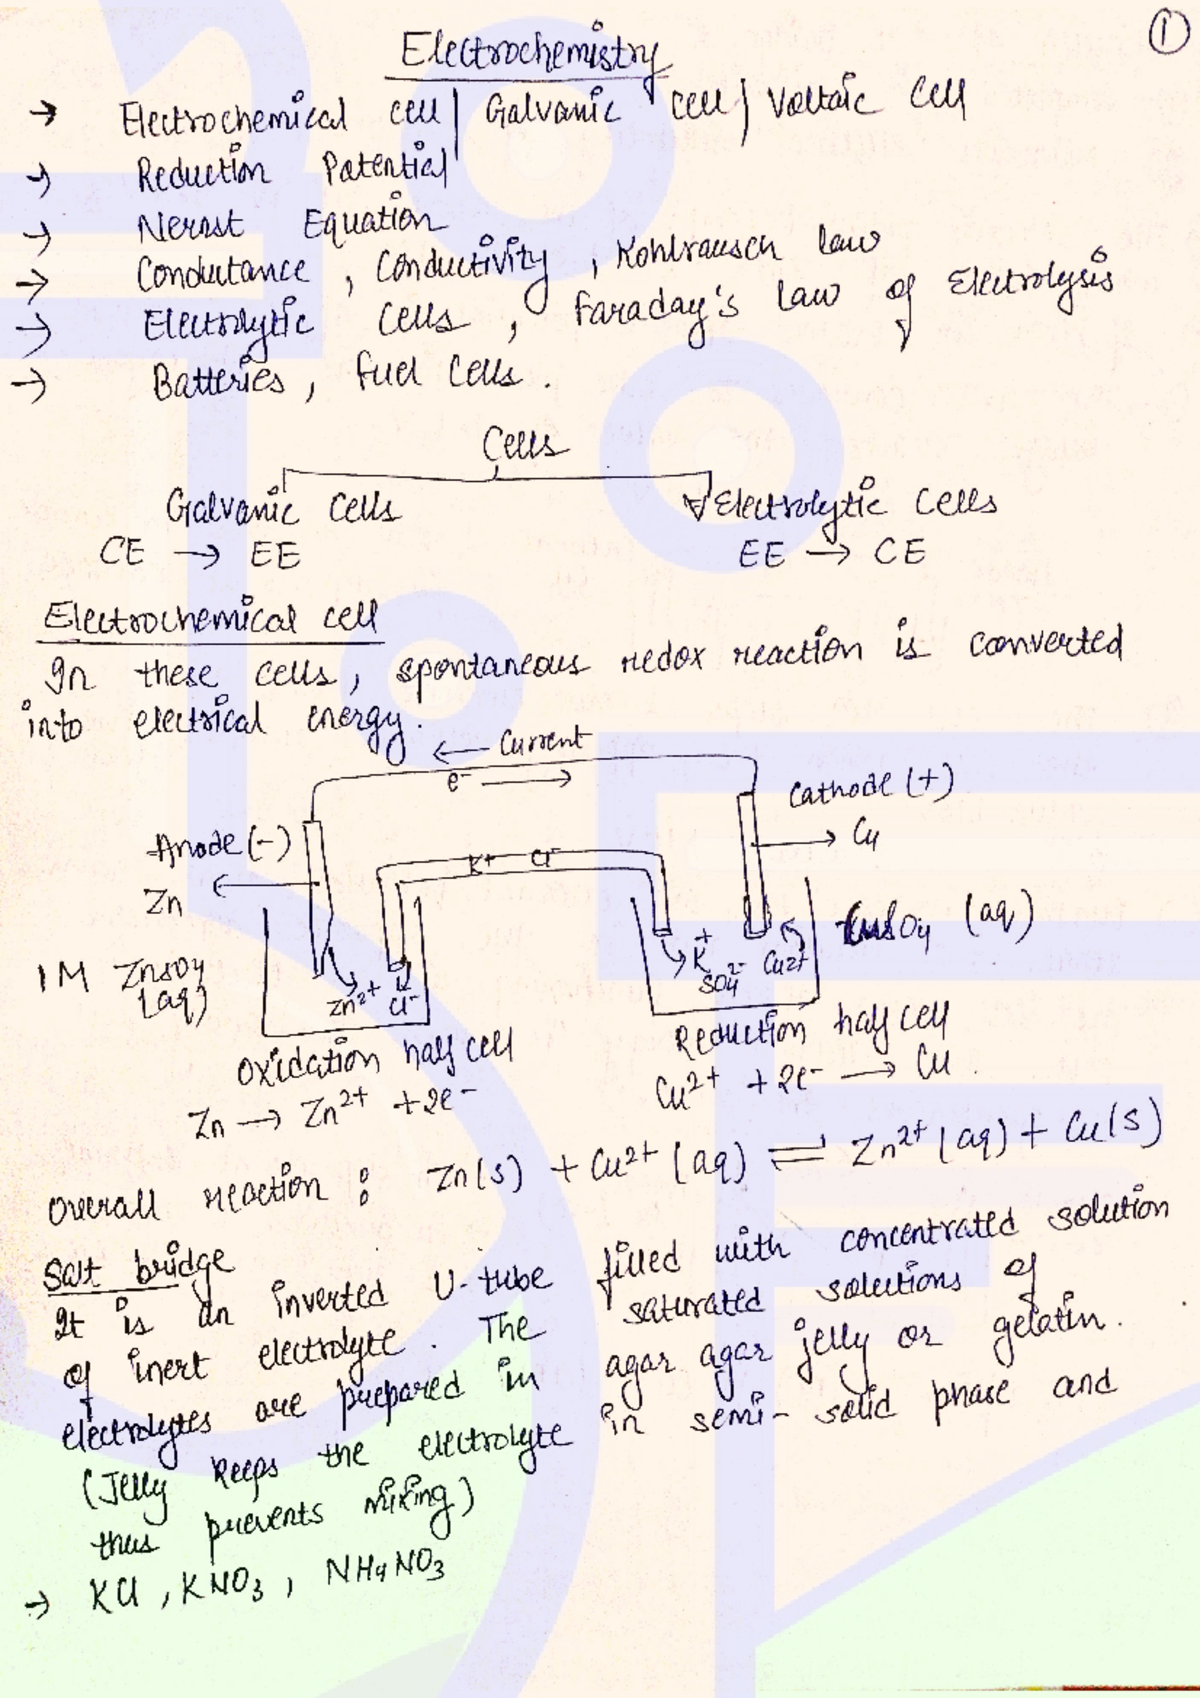 1
Electrochemistry
→ Electrochemical cell | Galvanic cell | Voltaic Cell
→ Reduction Potential
→ Nernst Equation
→ Conductance, Conductivity, Kohlrausch law
→ Electrolytic Cells, Faraday's law of Electrolysis
→ Batteries, Fuel Cells.
Cells
Galvanic Cells Electrolytic Cells
CE → EE EE → CE
Electrochemical cell
In these cells, spontaneous redox reaction is converted
into electrical energy.
← Current
e⁻ →
Cathode (+)
Anode (-)
Cu
K⁺ Cl⁻
Zn
CuSO4 (aq)
1M ZnSO4
(aq)
Zn²⁺ Cl⁻
K⁺ SO4²⁻ Cu²⁺
Oxidation half cell Reduction half cell
Zn → Zn²⁺ + 2e⁻ Cu²⁺ + 2e⁻ → Cu.
Overall reaction : Zn(s) + Cu²⁺ (aq) ⇌ Zn²⁺ (aq) + Cu(s)
Salt bridge
It is an inverted U-tube filled with concentrated solution
of inert electrolyte. The saturated solutions of
electrolytes are prepared in agar agar jelly or gelatin.
(Jelly keeps the electrolyte in semi-solid phase and
thus prevents mixing)
→ KCl, KNO3, NH4NO3